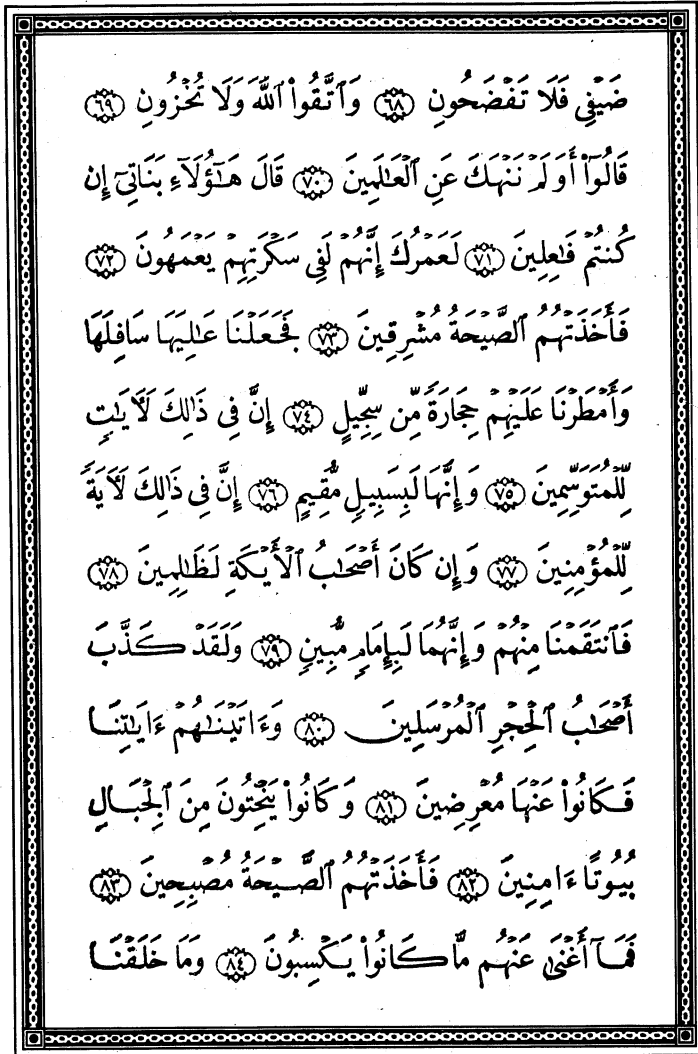 ضَيْفِي فَلَا تَفْضَحُونِ ٦٨ وَٱتَّقُوا۟ ٱللَّهَ وَلَا تُخْزُونِ ٦٩
قَالُوٓا۟ أَوَلَمْ نَنْهَكَ عَنِ ٱلْعَـٰلَمِينَ ٧٠ قَالَ هَـٰٓؤُلَآءِ بَنَاتِىٓ إِن
كُنتُمْ فَـٰعِلِينَ ٧١ لَعَمْرُكَ إِنَّهُمْ لَفِى سَكْرَتِهِمْ يَعْمَهُونَ ٧٢
فَأَخَذَتْهُمُ ٱلصَّيْحَةُ مُشْرِقِينَ ٧٣ فَجَعَلْنَا عَـٰلِيَهَا سَافِلَهَا
وَأَمْطَرْنَا عَلَيْهِمْ حِجَارَةً مِّن سِجِّيلٍ ٧٤ إِنَّ فِى ذَٰلِكَ لَـَٔايَـٰتٍ
لِّلْمُتَوَسِّمِينَ ٧٥ وَإِنَّهَا لَبِسَبِيلٍ مُّقِيمٍ ٧٦ إِنَّ فِى ذَٰلِكَ لَـَٔايَةً
لِّلْمُؤْمِنِينَ ٧٧ وَإِن كَانَ أَصْحَـٰبُ ٱلْأَيْكَةِ لَظَـٰلِمِينَ ٧٨
فَٱنتَقَمْنَا مِنْهُمْ وَإِنَّهُمَا لَبِإِمَامٍ مُّبِينٍ ٧٩ وَلَقَدْ كَذَّبَ
أَصْحَـٰبُ ٱلْحِجْرِ ٱلْمُرْسَلِينَ ٨٠ وَءَاتَيْنَـٰهُمْ ءَايَـٰتِنَا
فَكَانُوا۟ عَنْهَا مُعْرِضِينَ ٨١ وَكَانُوا۟ يَنْحِتُونَ مِنَ ٱلْجِبَالِ
بُيُوتًا ءَامِنِينَ ٨٢ فَأَخَذَتْهُمُ ٱلصَّيْحَةُ مُصْبِحِينَ ٨٣
فَمَآ أَغْنَىٰ عَنْهُم مَّا كَانُوا۟ يَكْسِبُونَ ٨٤ وَمَا خَلَقْنَا